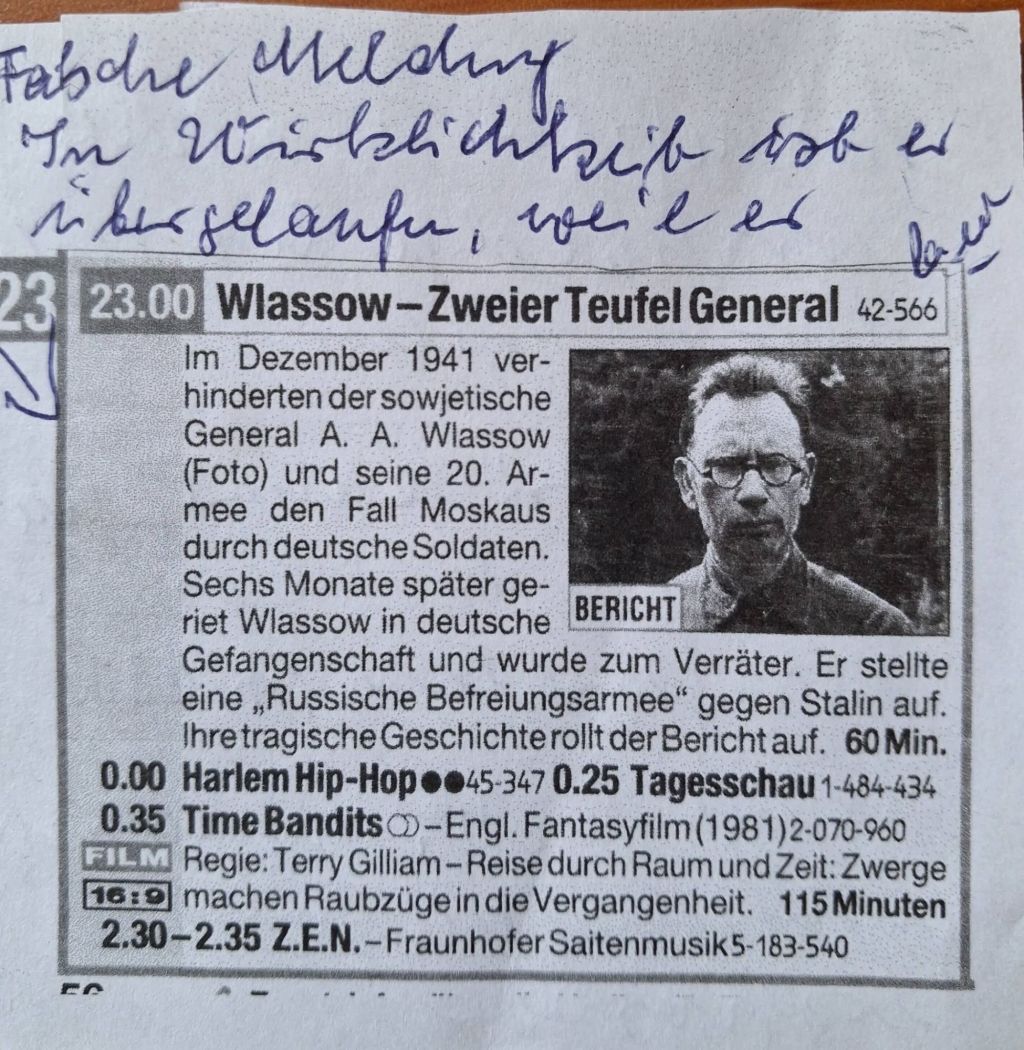 Falsche Meldung
In Wirklichkeit ist er
übergelaufen, weil er
23
23.00 Wlassow – Zweier Teufel General 42-566
Im Dezember 1941 ver-
hinderten der sowjetische
General A. A. Wlassow
(Foto) und seine 20. Ar-
mee den Fall Moskaus
durch deutsche Soldaten.
Sechs Monate später ge-
riet Wlassow in deutsche
BERICHT
Gefangenschaft und wurde zum Verräter. Er stellte
eine „Russische Befreiungsarmee“ gegen Stalin auf.
Ihre tragische Geschichte rollt der Bericht auf. 60 Min.
0.00 Harlem Hip-Hop ●● 45-347 0.25 Tagesschau 1-484-434
0.35 Time Bandits – Engl. Fantasyfilm (1981) 2-070-960
FILM Regie: Terry Gilliam – Reise durch Raum und Zeit: Zwerge
16:9 machen Raubzüge in die Vergangenheit. 115 Minuten
2.30–2.35 Z.E.N. – Fraunhofer Saitenmusik 5-183-540